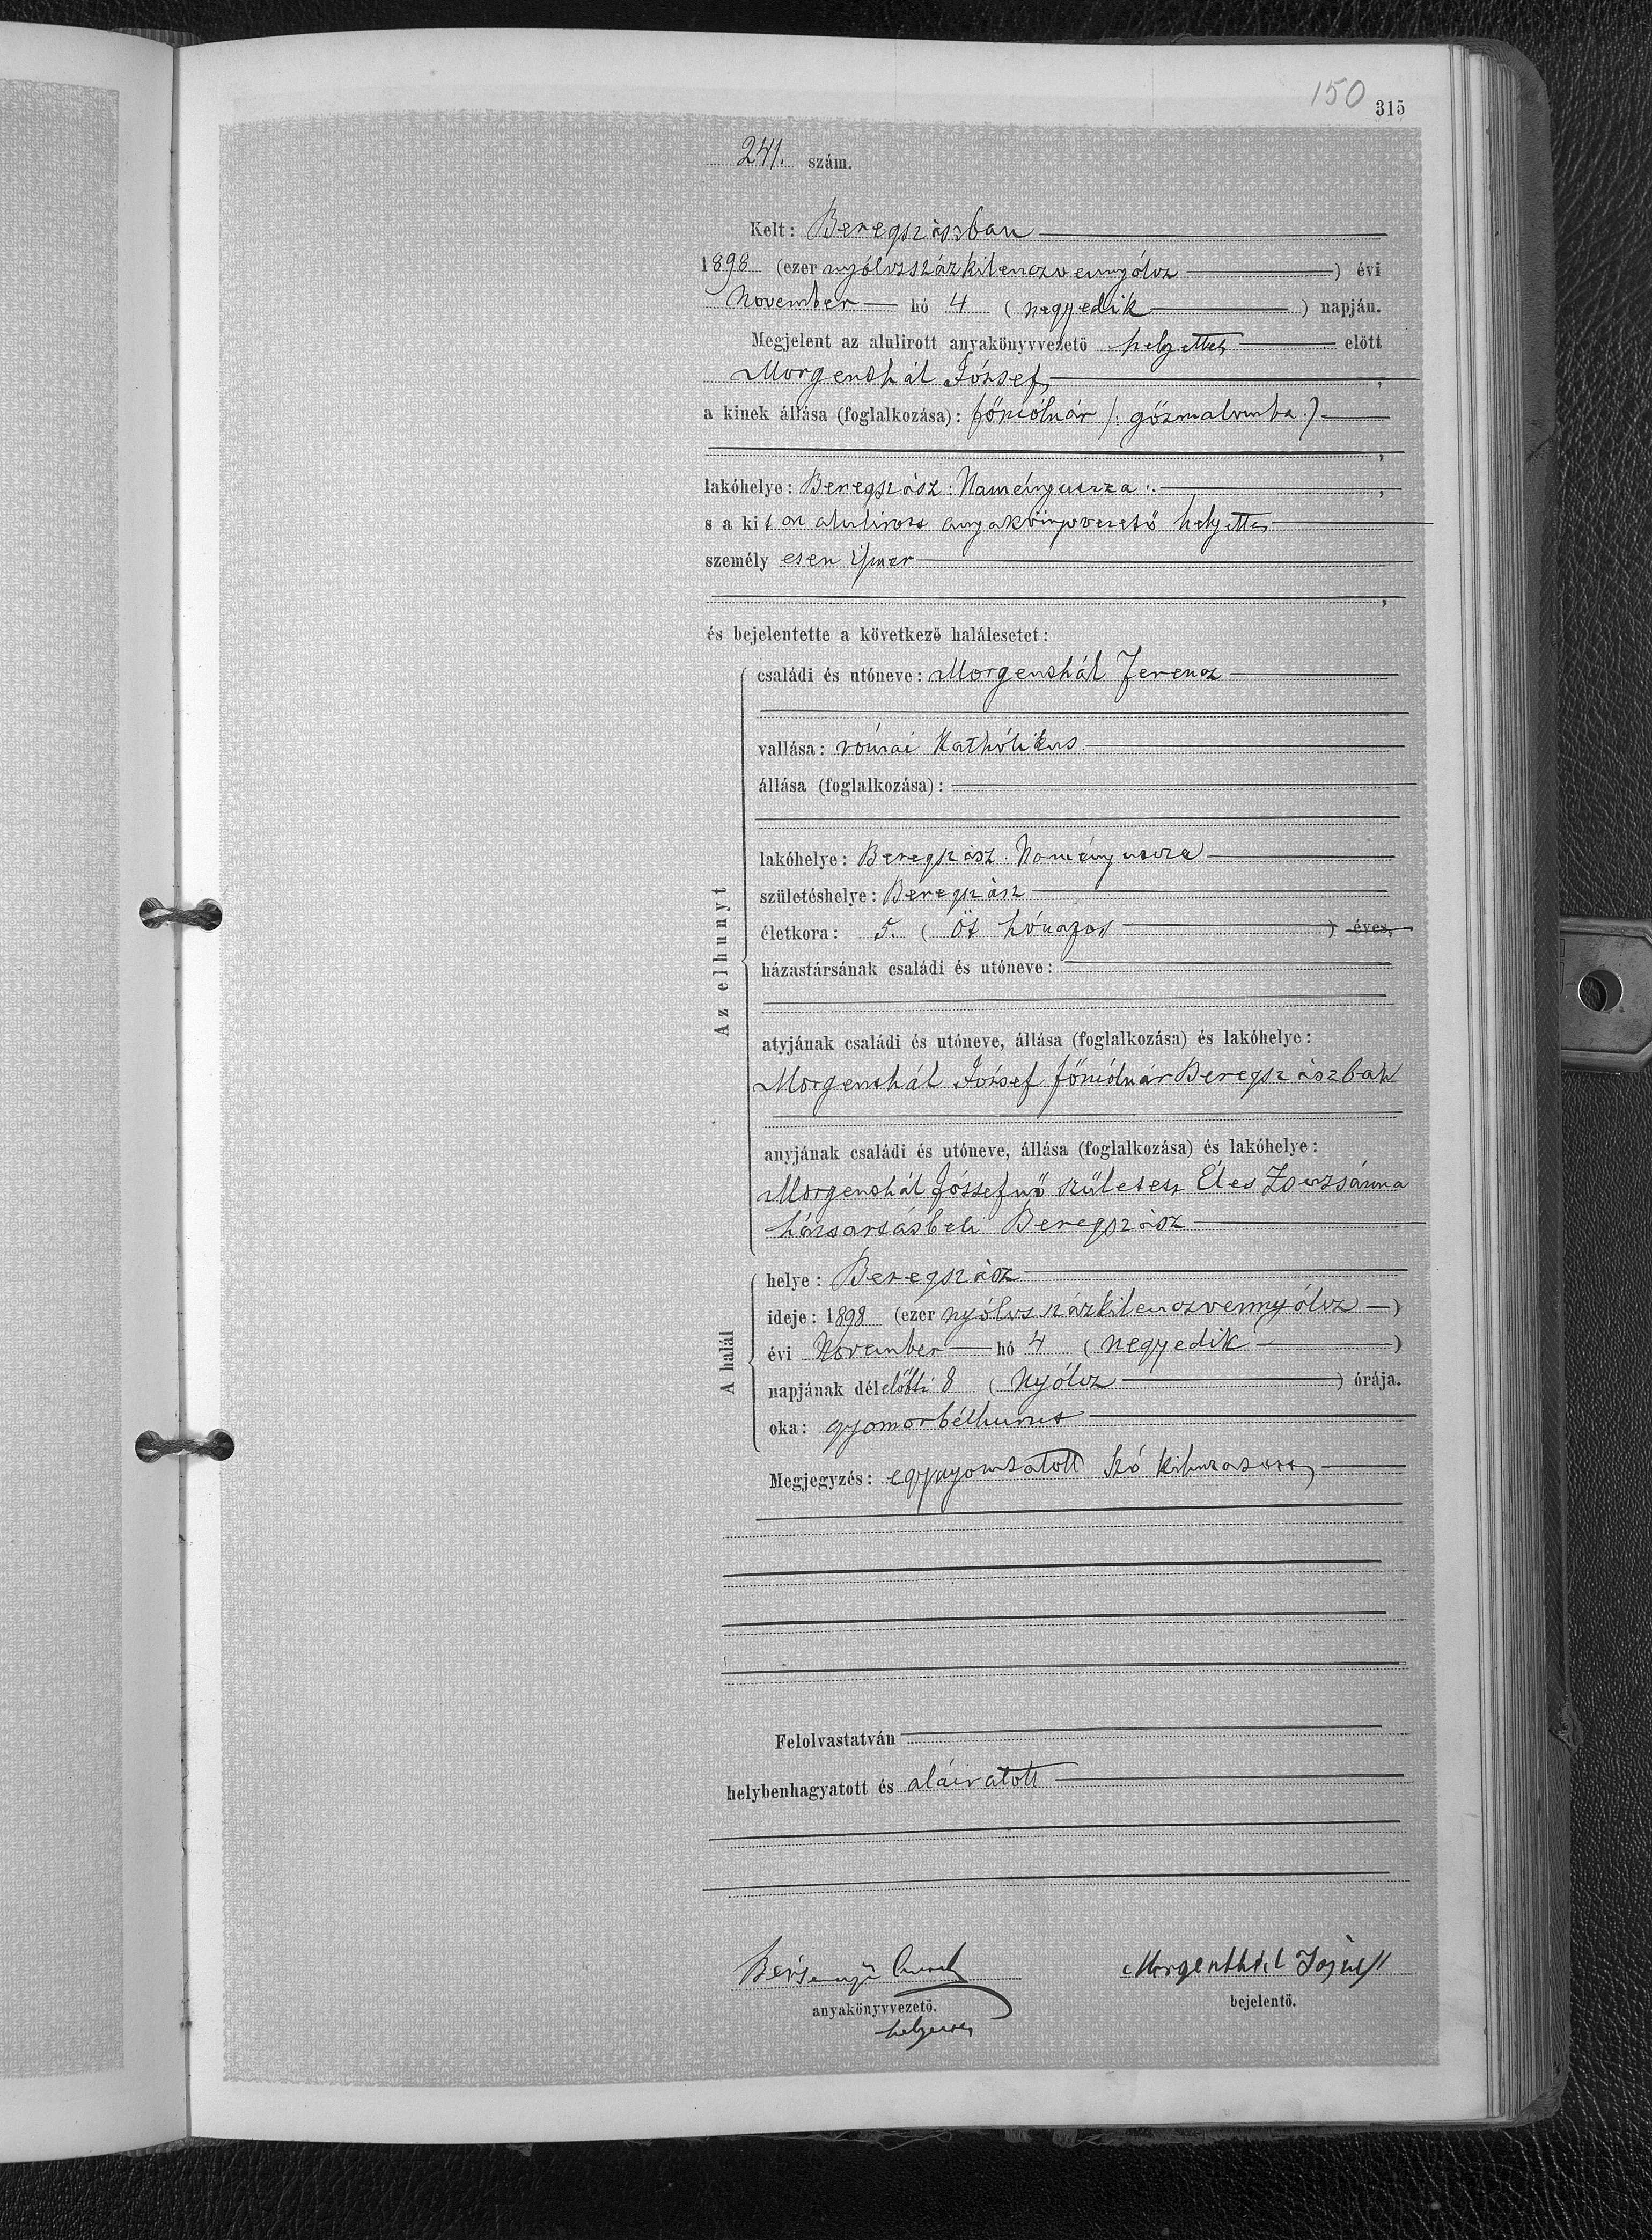 150
315
241. szám.
Kelt: Beregszászban
1898 (ezer nyólczszázkilenczvennyólcz ) évi
November hó 4 ( negyedik ) napján.
Megjelent az alulirott anyakönyvvezetö helyettes elött
Morgenthál József,
a kinek állása (foglalkozása): főmólnár /: gőzmalomba :/
,
lakóhelye: Beregszász: Namény utcza :. ,
s a kit az alulirott anyakönyvvezető helyettes
személy esen ismer
,
és bejelentette a következö halálesetet:
Az elhunyt
családi és utóneve: Morgenthál Ferencz
vallása: római Kathólikus.
állása (foglalkozása):
lakóhelye: Beregszász. Namény utcza
születéshelye: Beregszász
életkora: 5. ( öt hónapos ) éves,
házastársának családi és utóneve:
atyjának családi és utóneve, állása (foglalkozása) és lakóhelye:
Morgenthál József főmólnár Beregszászban
anyjának családi és utóneve, állása (foglalkozása) és lakóhelye:
Morgenthál Józsefnő születet Éles Zsuzsánna
háztartásbeli Beregszász
A halál
helye: Beregszász
ideje: 1898 (ezer nyólczszázkilenczvennyólcz )
évi November hó 4 ( negyedik )
napjának délelőtti 8 ( Nyólcz ) órája.
oka: gyomorbélhurut
Megjegyzés: egy nyomtatott szó kihuzatott,
Felolvastatván
helybenhagyatott és aláiratott
Morgenthál József
anyakönyvvezetö. bejelentö.
helyettes